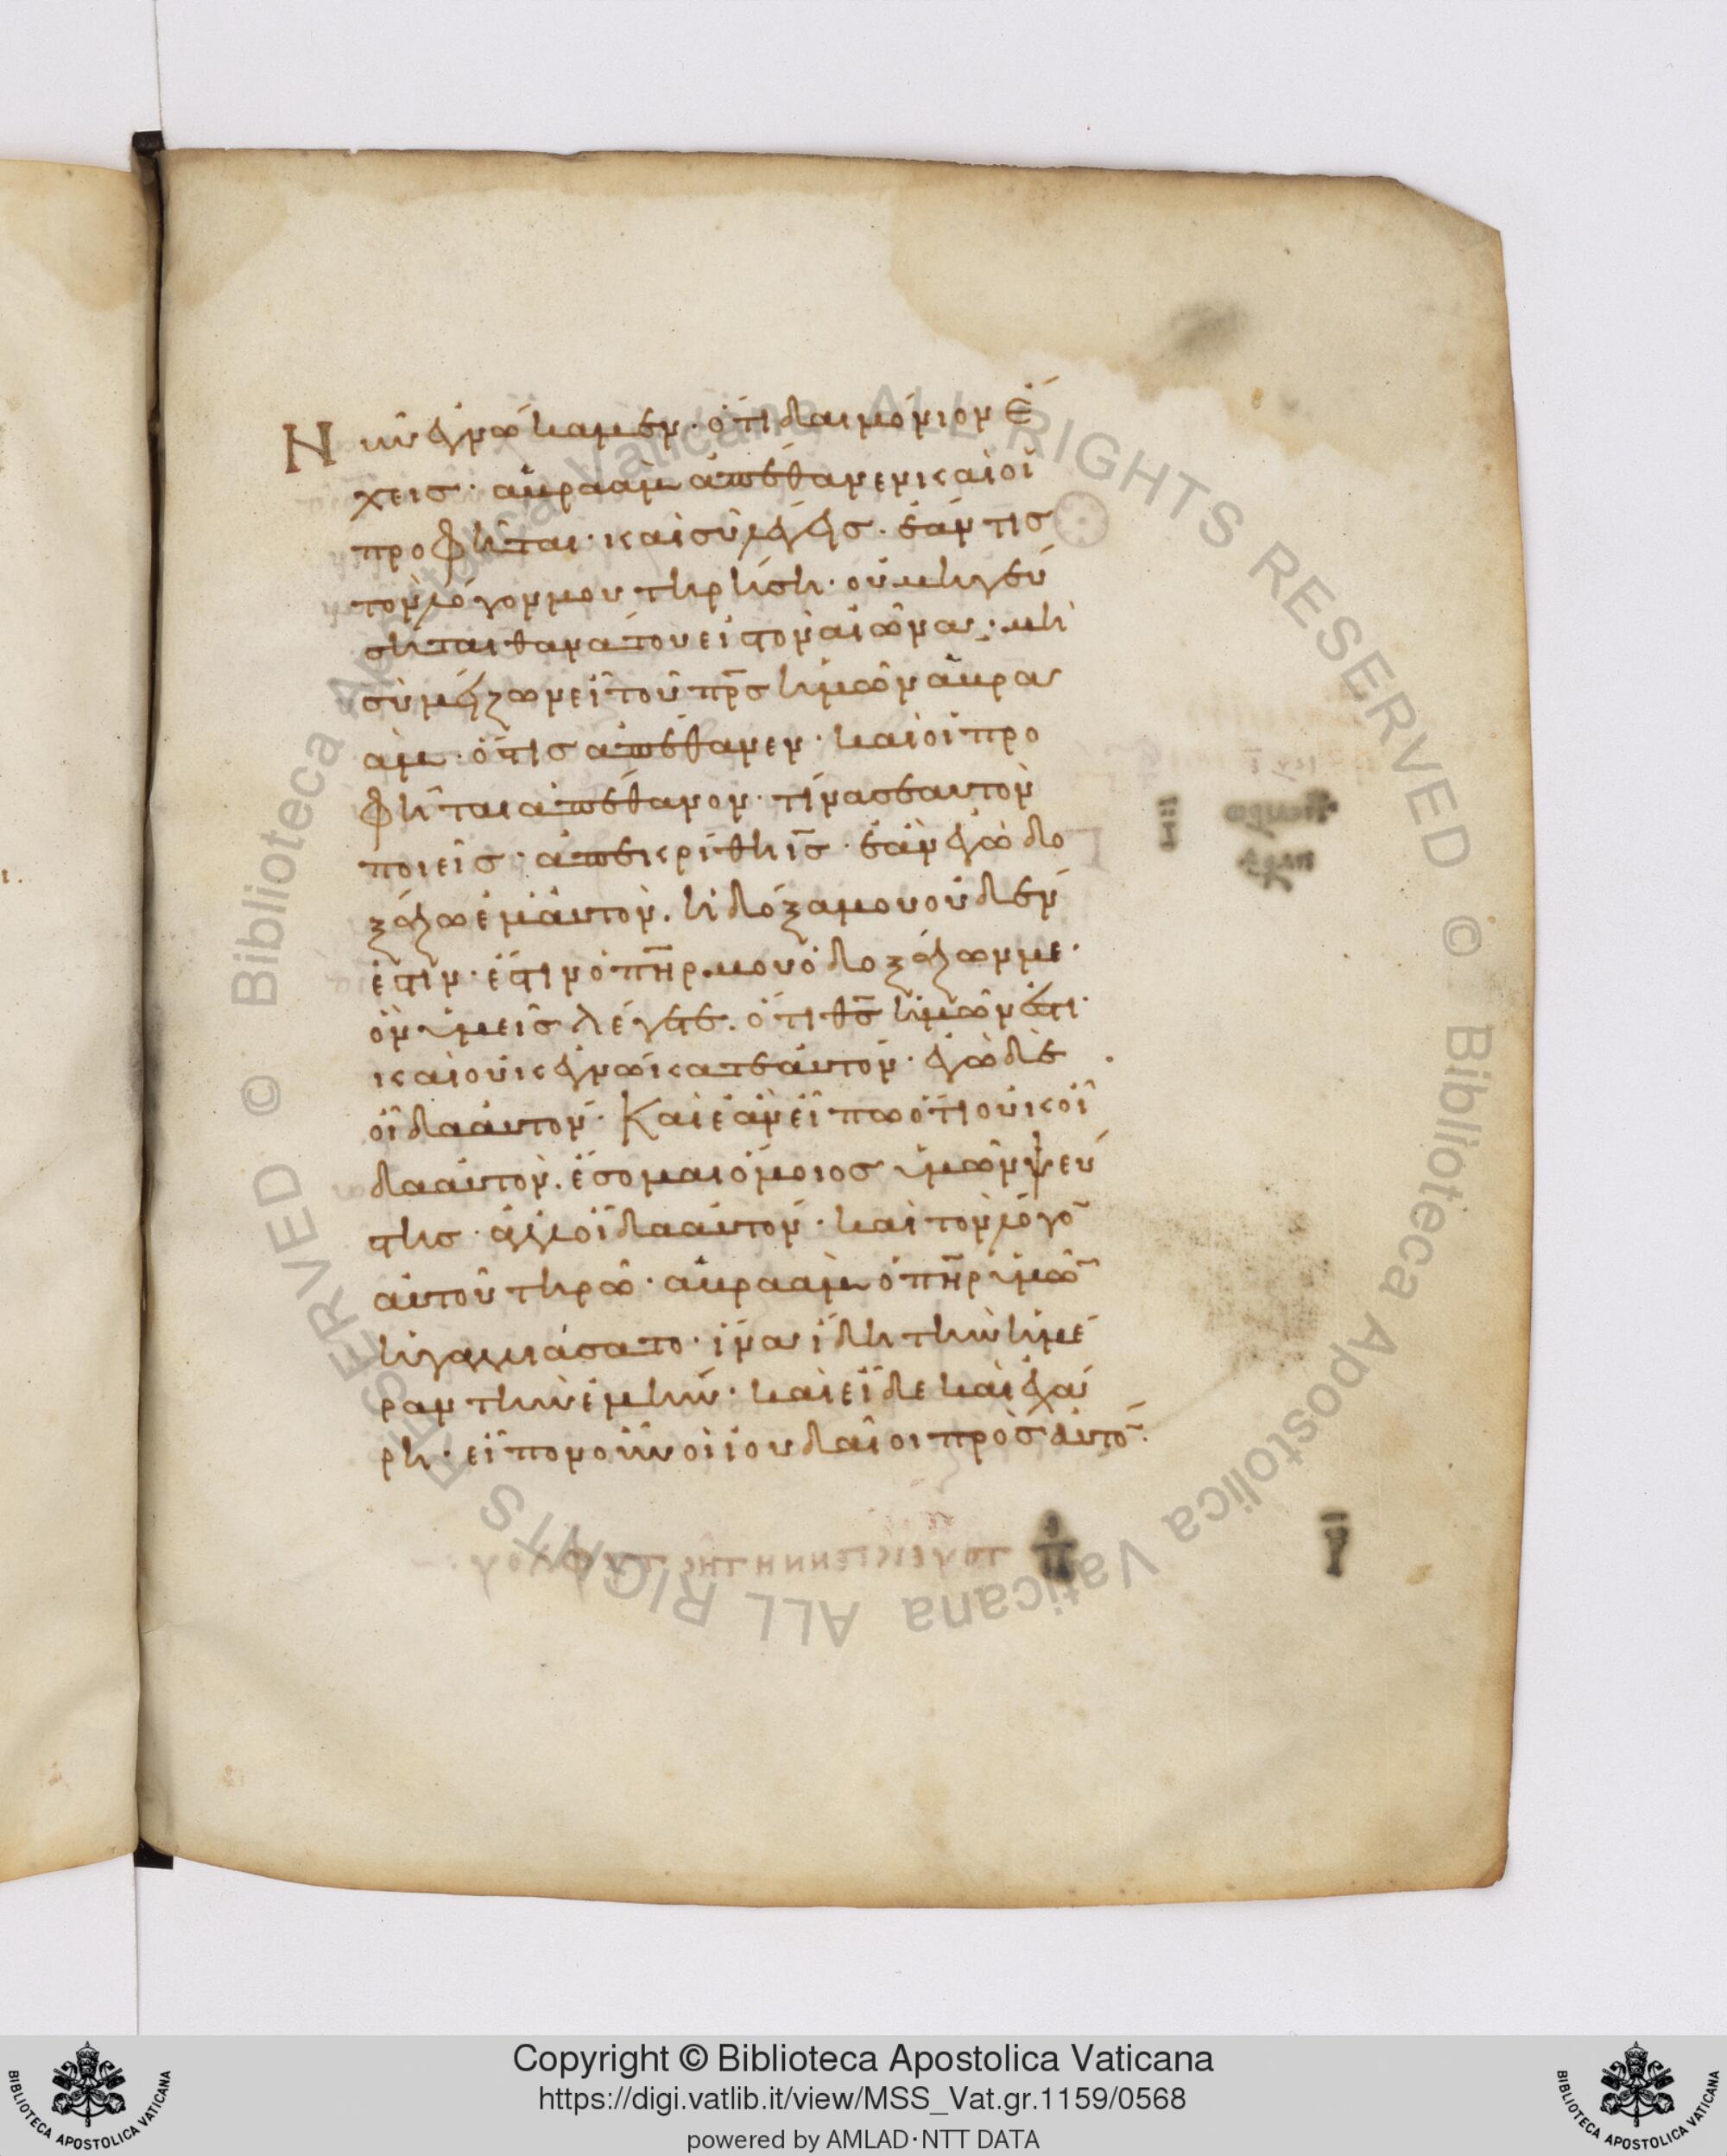 Νῦν ἐγνώκαμεν· ὅτι δαιμόνιον ἔ
χεις· ἀβραὰμ ἀπέθανεν καὶ οἱ
προφῆται· καὶ σὺ λέγεις· ἐάν τις
τὸν λόγον μου τηρήση· οὐ μὴ γεύ
σηται θανάτου εἰς τὸν αἰῶνα· μὴ
σὺ μείζων εἶ τοῦ πρ̅ς ἡμῶν ἀβρα
ὰμ· ὅστις ἀπέθανεν· καὶ οἱ προ
φῆται ἀπέθανον· τίνα σεαυτὸν
ποιεῖς· ἀπεκρίθη ι̅ς· ἐὰν ἐγὼ δο
ξάζω ἐμαυτόν. ἡ δόξα μου οὐδέν
ἐστιν· ἔστιν ὁ π̅η̅ρ μου ὁ δοξάζων με·
ὃν ὑμεῖς λέγετε. ὅτι θ̅ς ἡμῶν ἐστι·
καὶ οὐκ ἐγνώκατε αὐτόν· ἐγὼ δὲ
οἶδα αὐτόν· Καὶ ἐὰν εἴπω ὅτι οὐκ οἶ
δα αὐτόν. ἔσομαι ὅμοιος ὑμῶν ψεύ
στης· ἀλλ' οἶδα αὐτόν· καὶ τὸν λόγο̅
αὐτοῦ τηρῶ· ἀβραὰμ ὁ π̅η̅ρ ὑμῶ̅
ἠγαλλιάσατο· ἵνα ἴδη τὴν ἡμέ
ραν τὴν ἐμήν· καὶ εἶδε καὶ ἐχά
ρη· εἶπον οὖν οἱ ἰουδαῖοι πρὸς αὐτό̅·
Copyright © Biblioteca Apostolica Vaticana
https://digi.vatlib.it/view/MSS_Vat.gr.1159/0568
powered by AMLAD·NTT DATA
BIBLIOTECA APOSTOLICA VATICANA
BIBLIOTECA APOSTOLICA VATICANA
© Biblioteca Apostolica Vaticana ALL RIGHTS RESERVED
© Biblioteca Apostolica Vaticana ALL RIGHTS RESERVED